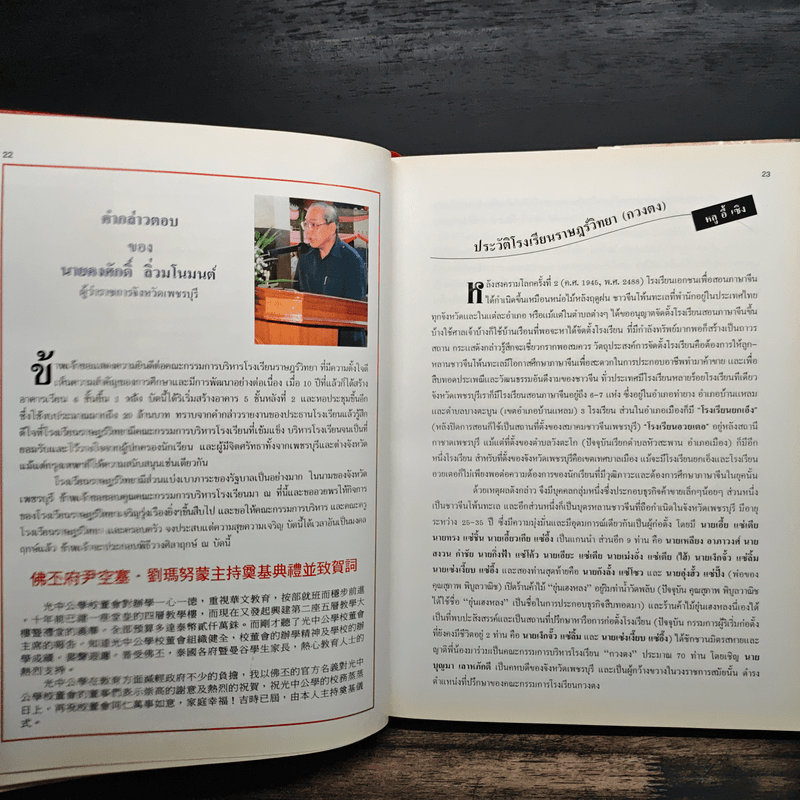 22
คำกล่าวตอบ
ของ
นายคงศักดิ์ ลิ่วมโนมนต์
ผู้ว่าราชการจังหวัดเพชรบุรี
ข้าพเจ้าขอแสดงความยินดีต่อคณะกรรมการบริหารโรงเรียนราษฎร์วิทยา ที่มีความตั้งใจดี
เห็นความสำคัญของการศึกษาและมีการพัฒนาอย่างต่อเนื่อง เมื่อ 10 ปีที่แล้วก็ได้สร้าง
อาคารเรียน 4 ชั้นขึ้น 1 หลัง บัดนี้ได้เริ่มสร้างอาคาร 5 ชั้นหลังที่ 2 และหอประชุมขึ้นอีก
ซึ่งใช้งบประมาณมากถึง 20 ล้านบาท ทราบจากคำกล่าวรายงานของประธานโรงเรียนแล้วรู้สึก
ดีใจที่โรงเรียนราษฎร์วิทยามีคณะกรรมการบริหารโรงเรียนที่เข้มแข็ง บริหารโรงเรียนจนเป็นที่
ยอมรับและไว้วางใจของผู้ปกครองนักเรียน และผู้มีจิตศรัทธาทั้งจากเพชรบุรีและต่างจังหวัด
แม้แต่กรุงเทพฯก็ให้ความสนับสนุนเช่นเดียวกัน
โรงเรียนราษฎร์วิทยามีส่วนแบ่งเบาภาระของรัฐบาลเป็นอย่างมาก ในนามของจังหวัด
เพชรบุรี ข้าพเจ้าขอขอบคุณคณะกรรมการบริหารโรงเรียนมา ณ ที่นี้และขออวยพรให้กิจการ
ของโรงเรียนราษฎร์วิทยาเจริญรุ่งเรืองยิ่งๆขึ้นสืบไป และขอให้คณะกรรมการบริหาร และคณะครู
โรงเรียนราษฎร์วิทยา และครอบครัว จงประสบแต่ความสุขความเจริญ บัดนี้ได้เวลาอันเป็นมงคล
ฤกษ์แล้ว ข้าพเจ้าจะประกอบพิธีวางศิลาฤกษ์ ณ บัดนี้
佛丕府尹空塞·劉瑪努蒙主持奠基典禮並致賀詞
光中公學校董會對辦學一心一德,重視華文教育,按部就班而穩步前進
。十年前已建一座堂皇的四層教學樓,而現在又發起興建第二座五層教學大
樓暨禮堂的義舉,全部預算多達泰幣貳仟萬銖。而剛才聽了光中公學校董會
主席的報告,知道光中公學校董會組織健全,校董會的辦學精神及學校的辦
學成績,
熱烈支持。
光中公學在教育方面減輕政府不少的負擔,我以佛丕的官方名義對光中
公學校董會的董事們表示崇高的謝意及熱烈的祝賀,祝光中公學的校務蒸蒸
日上。再祝校董會同仁萬事如意,家庭幸福!吉時已屆,由本人主持奠基儀
式。
23
ประวัติโรงเรียนราษฎร์วิทยา (กวงตง)
หลู อี้ เซิง
หลังสงครามโลกครั้งที่ 2 (ค.ศ. 1945, พ.ศ. 2488) โรงเรียนเอกชนเพื่อสอนภาษาจีน
ได้กำเนิดขึ้นเหมือนหน่อไม้หลังฤดูฝน ชาวจีนโพ้นทะเลที่พำนักอยู่ในประเทศไทย
ทุกจังหวัดและในแต่ละอำเภอ หรือแม้แต่ในตำบลต่างๆ ได้ขออนุญาตจัดตั้งโรงเรียนภาษาจีนขึ้น
บ้างใช้ศาลเจ้าบ้างก็ใช้บ้านเรือนที่พอจะหาได้จัดตั้งโรงเรียน ที่มีกำลังทรัพย์มากพอก็สร้างเป็นถาวร
สถาน กระแสดังกล่าวรู้สึกจะเชี่ยวกรากพอสมควร วัตถุประสงค์การจัดตั้งโรงเรียนคือต้องการให้ลูก-
หลานชาวจีนโพ้นทะเลมีโอกาสศึกษาภาษาจีนเพื่อสะดวกในการประกอบอาชีพทำมาค้าขาย และเพื่อ
สืบทอดประเพณีและวัฒนธรรมอันดีงามของชาวจีน ทั่วประเทศมีโรงเรียนหลายร้อยโรงเรียนทีเดียว
จังหวัดเพชรบุรีเราก็มีโรงเรียนสอนภาษาจีนอยู่ถึง 6-7 แห่ง ซึ่งอยู่ในอำเภอท่ายาง อำเภอบ้านแหลม
และตำบลบางตะบูน (เขตอำเภอบ้านแหลม) 3 โรงเรียน ส่วนในอำเภอเมืองก็มี "โรงเรียนยกเอ็ง"
(หลังปิดการสอนก็ใช้เป็นสถานที่ตั้งของสมาคมชาวจีนเพชรบุรี) "โรงเรียนอวยเตอ" อยู่หลังสถานี
กาชาดเพชรบุรี แม้แต่ที่ตั้งของตำบลวังตะโก (ปัจจุบันเรียกตำบลหัวสะพาน อำเภอเมือง) ก็มีอีก
หนึ่งโรงเรียน สำหรับที่ตั้งของจังหวัดเพชรบุรีคือเขตเทศบาลเมือง แม้จะมีโรงเรียนยกเอ็งและโรงเรียน
อวยเตอก็ไม่เพียงพอต่อความต้องการของนักเรียนที่มีวุฒิภาวะและต้องการศึกษาภาษาจีนในยุคนั้น
ด้วยเหตุผลดังกล่าว จึงมีบุคคลกลุ่มหนึ่งซึ่งประกอบธุรกิจค้าขายเล็กๆน้อยๆ ส่วนหนึ่ง
เป็นชาวจีนโพ้นทะเล และอีกส่วนหนึ่งก็เป็นบุตรหลานชาวจีนที่ถือกำเนิดในจังหวัดเพชรบุรี มีอายุ
ระหว่าง 25-35 ปี ซึ่งมีความมุ่งมั่นและมีอุดมการณ์เดียวกันเป็นผู้ก่อตั้ง โดยมี นายเฮี้ย แซ่เตีย
นายทวง แซ่ชั้น นายเฮี้ยบเกีย แซ่อึ้ง เป็นแกนนำ ส่วนอีก 9 ท่าน คือ นายเหลียง อาภาวงศ์ นาย
สงวน กำชัย นายกิ่งฟ้า แซ่โค้ว นายเฮียะ แซ่เตีย นายเม่งอั่ง แซ่เตีย (ไล้) นายเง็กจั๊ว แซ่ลิ้ม
นายเซ่งเงี้ยบ แซ่อึ้ง และสองท่านสุดท้ายคือ นายกังลิ้ง แซ่โซว และ นายลุ่งฮั้ว แซ่ปึ้ง (พ่อของ
คุณสุภาพ พิบูลวาณิช) เปิดร้านค้าไม้ "ยุ่นเฮงหลง" อยู่ริมท่าน้ำวัดพลับ (ปัจจุบัน คุณสุภาพ พิบูลวาณิช
ได้ใช้ชื่อ "ยุ่นเฮงหลง" เป็นชื่อในการประกอบธุรกิจสืบทอดมา) และร้านค้าไม้ยุ่นเฮงหลงนี่เองได้
เป็นที่พบปะสังสรรค์และเป็นสถานที่ปรึกษาหารือการก่อตั้งโรงเรียน (ปัจจุบัน กรรมการผู้ริเริ่มก่อตั้ง
ที่ยังคงมีชีวิตอยู่ 2 ท่าน คือ นายเง็กจั๊ว แซ่ลิ้ม และ นายเซ่งเงี้ยบ แซ่อึ้ง) ได้ชักชวนมิตรสหายและ
ญาติที่น้องมาร่วมเป็นคณะกรรมการบริหารโรงเรียน "กวงตง" ประมาณ 70 ท่าน โดยเชิญ นาย
บุญมา เลาหภักดี เป็นคหบดีของจังหวัดเพชรบุรี และเป็นผู้กว้างขวางในวงราชการสมัยนั้น ดำรง
ตำแหน่งที่ปรึกษาของคณะกรรมการโรงเรียนกวงตง